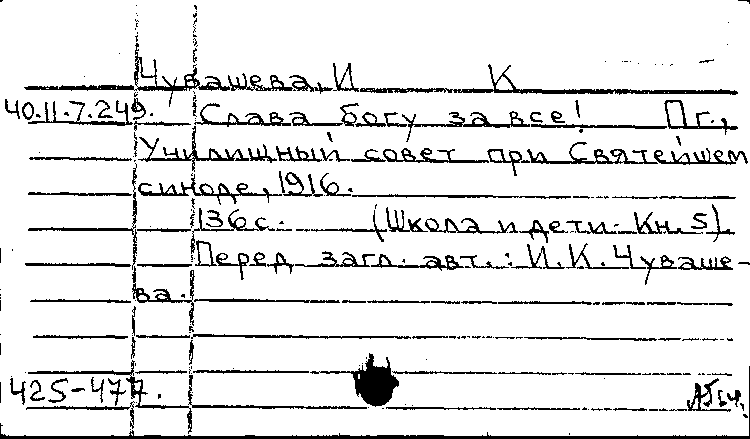 Чувашева, И К
40.11.7.249. Слава богу за все! Пг.,
Училищный совет при Святейшем
синоде, 1916.
136 с. (Школа и дети. Кн. 5).
Перед загл. авт.: И.К. Чуваше-
ва.
425-477.